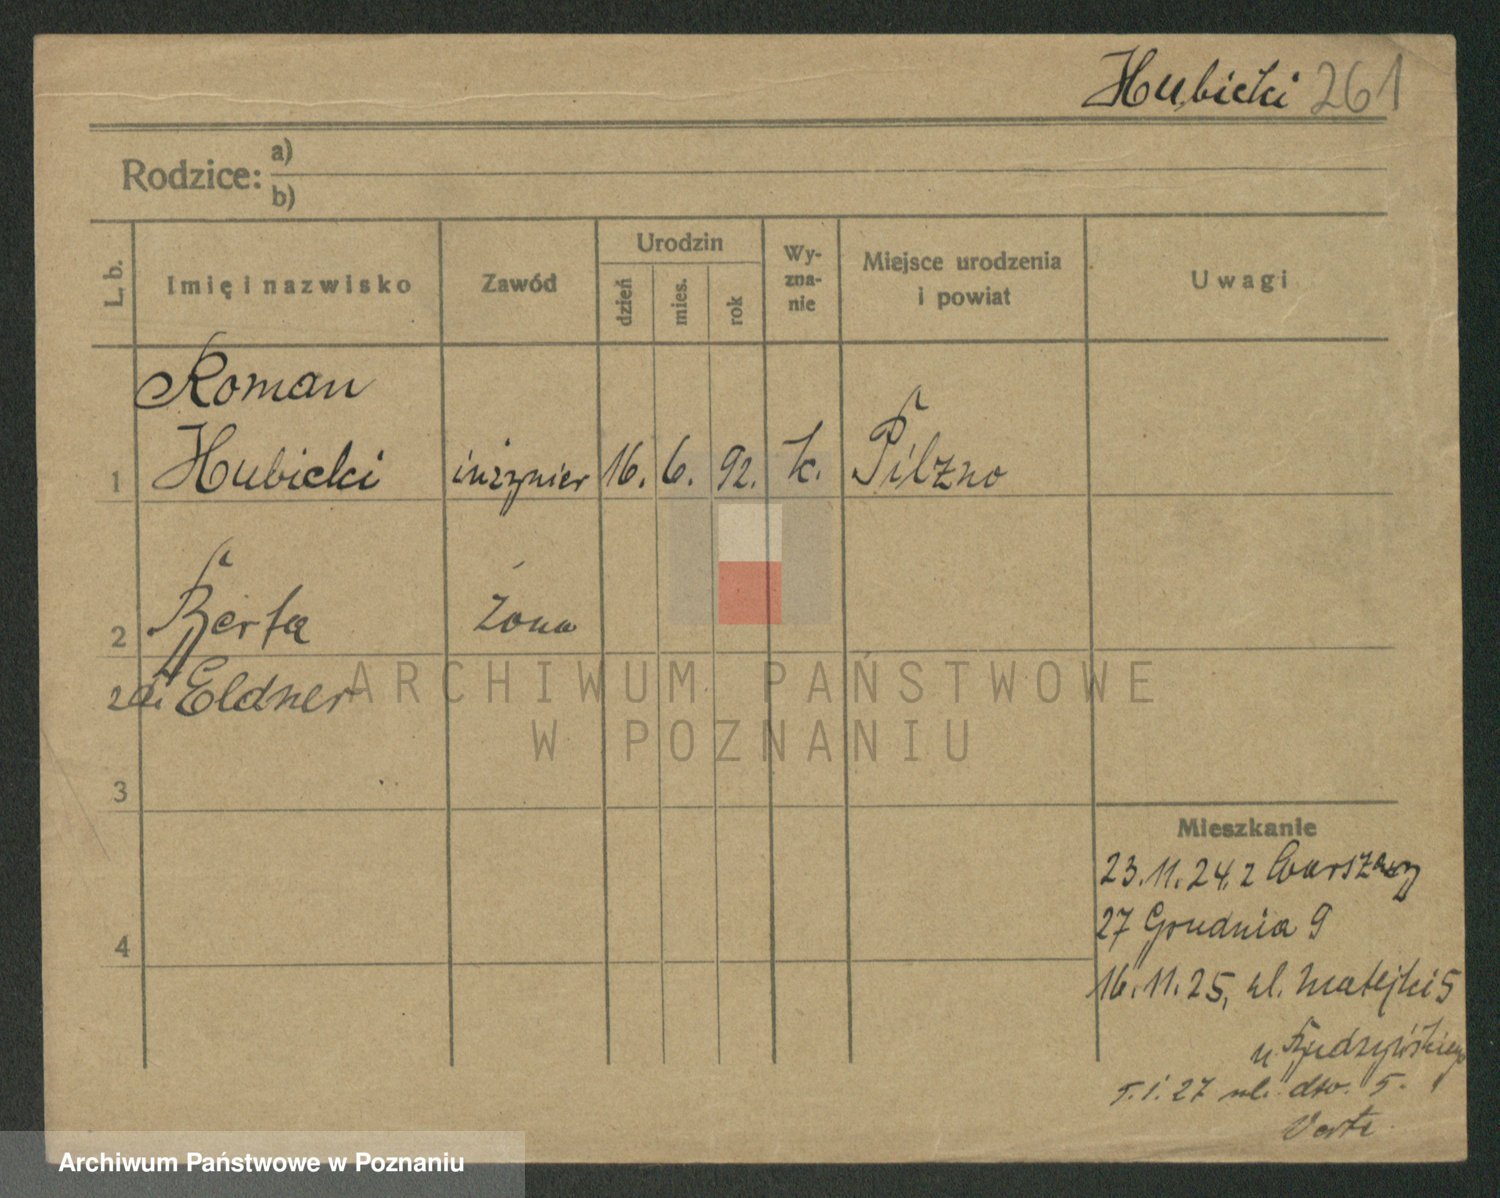 Hubicki 261
Rodzice: a)
b)
L. b.
Imię i nazwisko
Zawód
Urodzin
dzień
mies.
rok
Wy-
zna-
nie
Miejsce urodzenia
i powiat
Uwagi
Roman
1 Hubicki inżynier 16. 6. 92. k. Pilzno
2 Berta żona
zd. Eldner
ARCHIWUM PAŃSTWOWE
W POZNANIU
3
Mieszkanie
23.11.24. z Warszawy
27 Grudnia 9
4
16.11.25, ul. Matejki 5
u
5.1.27 ul. dto. 5.
Archiwum Państwowe w Poznaniu